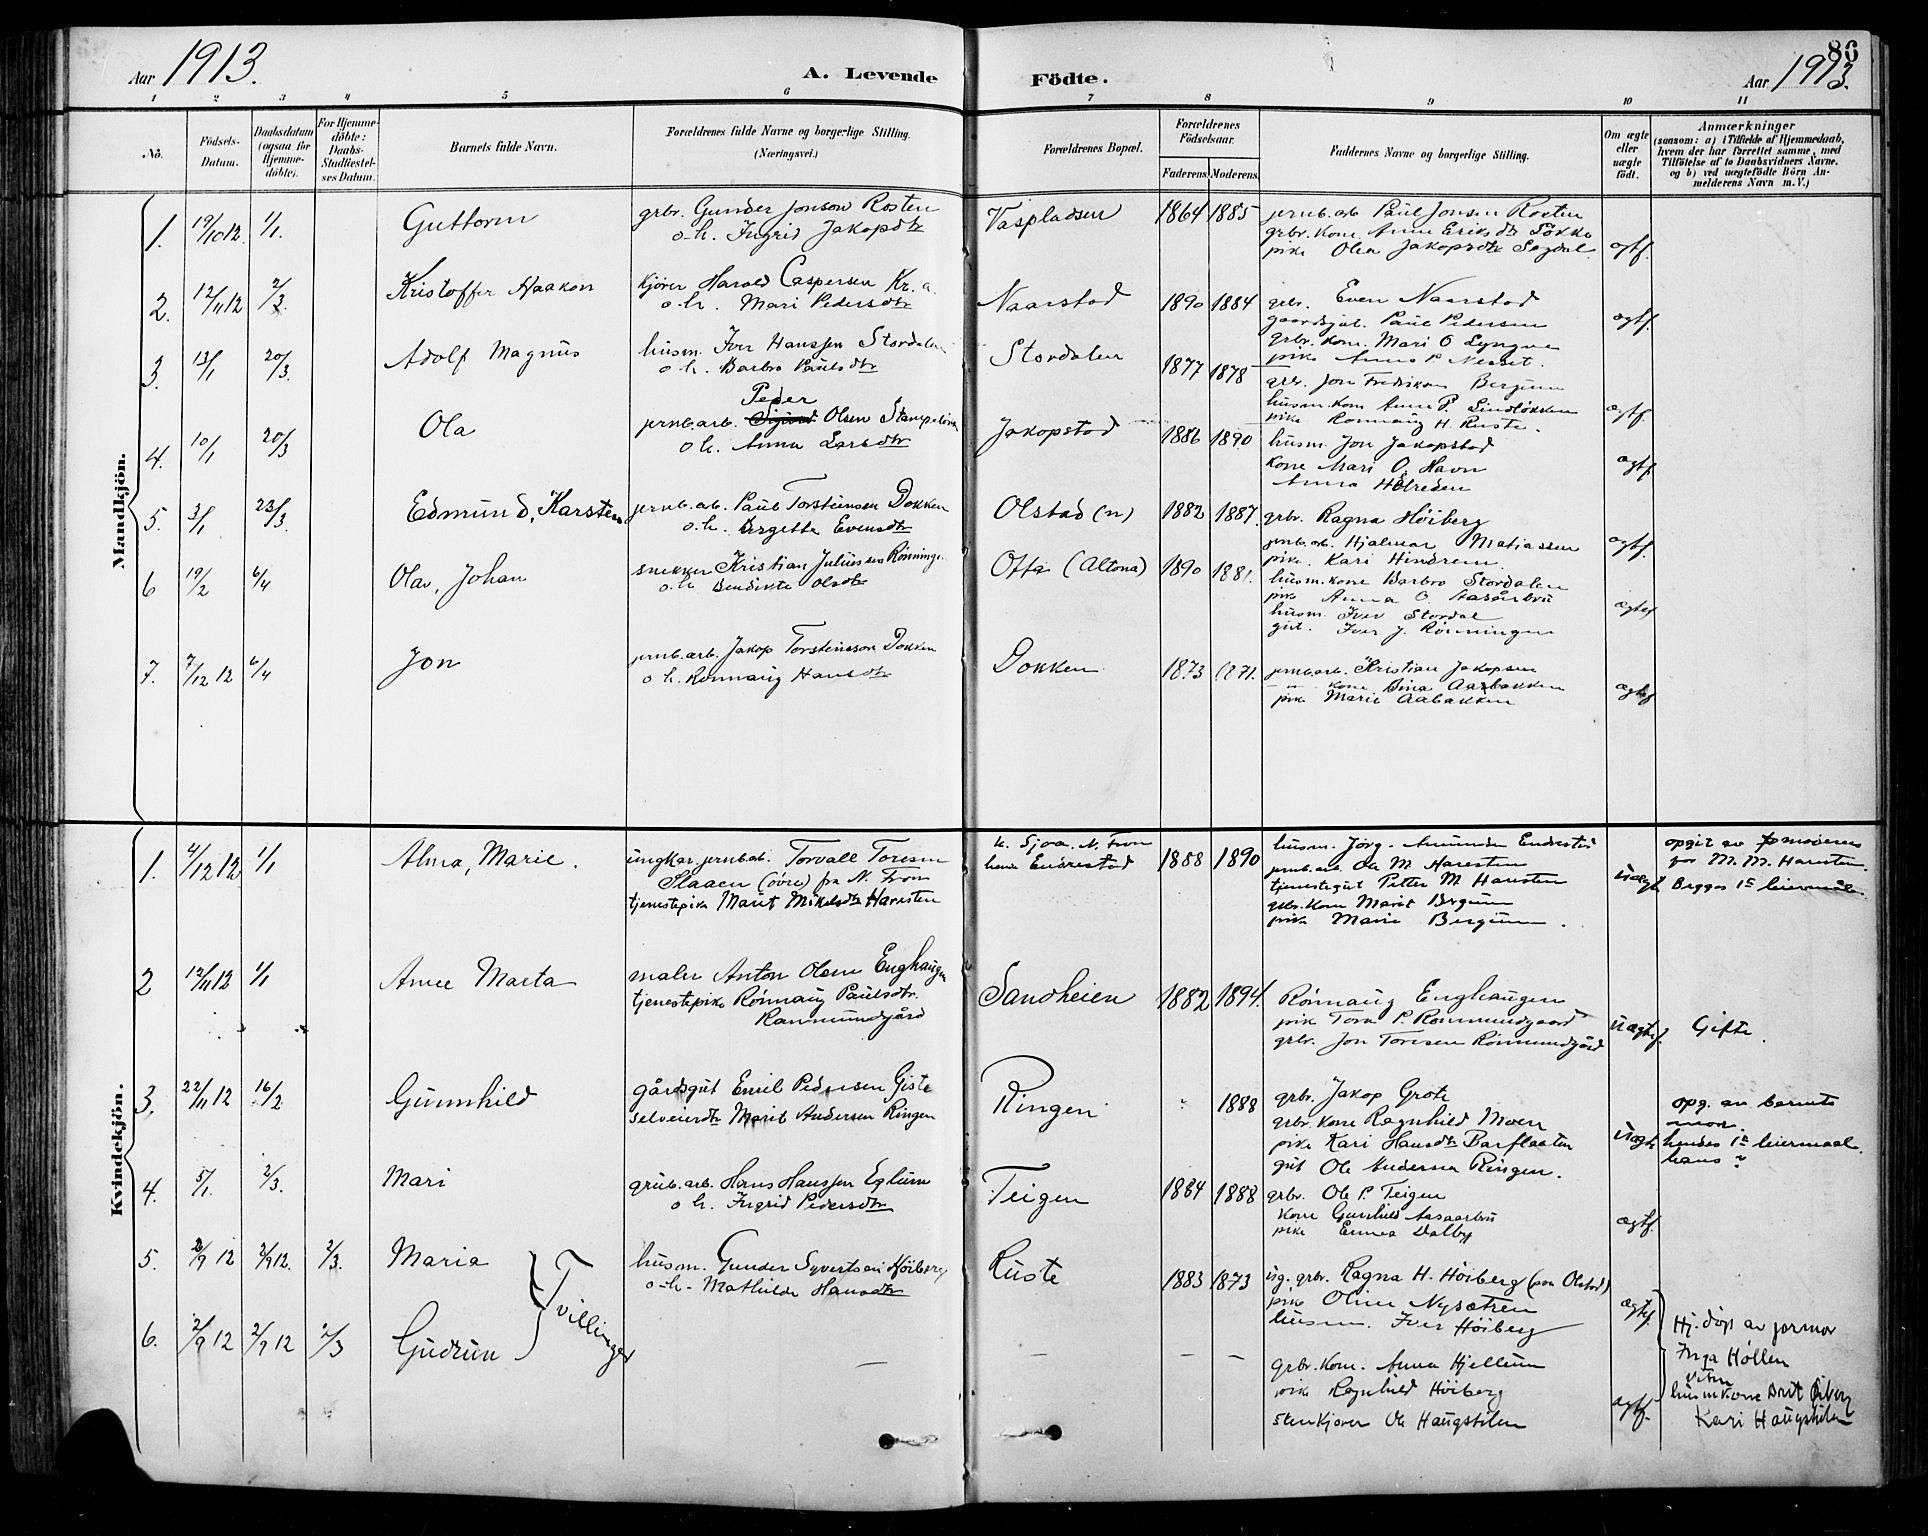 Aar 1913.
A. Levende Födte.
86
Aar 1913.
1 2 3 4 5 6 7 8 9 10 11
No.
Födsels-Datum.
Daabsdatum (ogsaa for Hjemme-döbte).
For Hjemme-döbte: Daabs-Stadfæstel-ses Datum.
Barnets fulde Navn.
Forældrenes fulde Navne og borgerlige Stilling. (Næringsvei.)
Forældrenes Bopæl.
Forældrenes Födselsaar.
Faderens. Moderens.
Faddernes Navne og borgerlige Stilling.
Om ægte eller uægte födt.
Anmærkninger
(saasom: a) i Tilfælde af Hjemmedaab, hvem der har forrettet samme, med Tilföielse af to Daabsvidners Navne, og b) ved uægtefödte Börn An-melderens Navn m. V.)
Mandkjön.
1. 19/10 12. 1/1. Guttorm grbr. Gunder Jonson Rosten Vaspladsen 1864 1885 jernb. arb Paul Jonsen Rosten
o. h. Ingrid Jakopsdtr grbr. kone Anne Eriksdtr Tökke
pike Olea Jakopsdtr Sogdal. ægtf.
2. 12/11 12 2/3. Kristoffer Haakon kjörer Harald Caspersen Kr. a. Naarstad 1890 1884 grbr. Even Naarstad
o. h. Mari Pedersdtr gaardsgut. Paul Pedersen ægtf.
grbr. kone. Mari O Lyngve
pike Anna P. Nesset.
3. 13/1 20/3. Adolf Magnus husm. Iver Hanssen Stordalen Stordalen 1877 1878 grbr. Jon Fredrikson Bergum
o. h. Barbro Paulsdtr husm. kone Anne P. Lindlökken ægtf.
pike Rønnaug H. Ruste.
4. 10/1 20/3 Ola jernb. arb. Peder Olsen Jakopstad 1886 1890 husm. Jon Jakopstad
o h. Anna Larsdtr kone Mari O. Havn ægtf.
Anna
5. 3/1 23/3 Edmund, Karsten jernb. arb. Paul Torsteinsen Dokken Olstad (n) 1882 1887. grbr. Ragna Höiberg
o. h. Birgitte Evensdtr jernb. arb. Hjalmar Matiassen ægtf.
pike. Kari Hindrem.
6 19/2 6/4 Olav, Johan snekker Kristian Juliussen Rönningen Otta (Altona) 1890 1881. husm. kone Barbro Stordalen
o. h Bendikte Olsdtr pike Anna O Aasårbru
husm. Iver Stordal ægtef
gut. Iver J. Rönningen
7. 7/12 12 6/4 Jon jernb. arb. Jakop Torsteinsson Dokken Dokken 1873 1871. jernb. arb. Kristian Jakopsen
o h. Rönnaug Hansdtr — " — kone Dina Aabakken
pike Marie Aabakken ægtef
Kvindekjön.
1. 4/12 12 1/1 Alma, Marie. ungkar jernb. ab. Torvall Toresen h. Sjoa. N. Fron 1888 1890 husm. Jörg. Amunden Endrestø
Slaaen (övre) fra N. Fron hende Endrestad jernb. arb. Ole M Harresten
tjenestepike Marit Mikelsdtr Harresten tjenestegut Petter M Harsten uægt
grbr. kone Marit Bergum
pike Marie Bergum.
opgit av
for M. M. Harsten.
Begges 1ste leiermål
2 12/11 12 1/1 Anne Marta maler Anton Olsen Enghaugen Sandheien 1882 1894. Rönnaug Enghaugen
tjenestepike Rönnaug Paulsdtr. pike Tora P. Rönmundgaard
Ranmundgård grbr. Jon Toresen Rönmundgård uægtef. Gifte.
3. 22/11 12 16/2 Gunnhild gårdsgut Emil Pedersen Giste Ringen 1888 grbr. Jakop Grote
selveierdtr Marit Andersen Ringen grbr. kone Ragnhild Moen
pike Kari Hansdtr Barflaaten uægte
gut Ole Andersen Ringen.
opg. av barnets mor.
hendes 1ste leiermaal.
hans ?
4. 5/1. 2/3. Mari grub. arb. Hans Hanssen Eglum Teigen 1884 1888 grbr. Ole P. Teigen
o h. Ingrid Pedersdtr kone Gunhild Aasaarbru
pike Emma Dalby ægtf.
5. 2/9 12 2/9 12. 2/3. Maria husm. Gunder Syvertsen Höiberg Ruste 1883 1873 ug. grbr. Ragna H. Höiberg (paa Olstad)
Tvillinger o-h- Mathilde Hansdtr pike Oline Nysætren
husm. Iver Höiberg ægtef.
6. 2/9 12 2/9 12 2/3 Gudrun — — — grbr. kone. Anna Hjellum
pike Ragnhild Höiberg
stenkjører Ole Haugstilen ægtf.
Hj. döpt av jormor
Inga Hollen
Vitne
husm kone Brit Öiberg
Kari Haugstilen